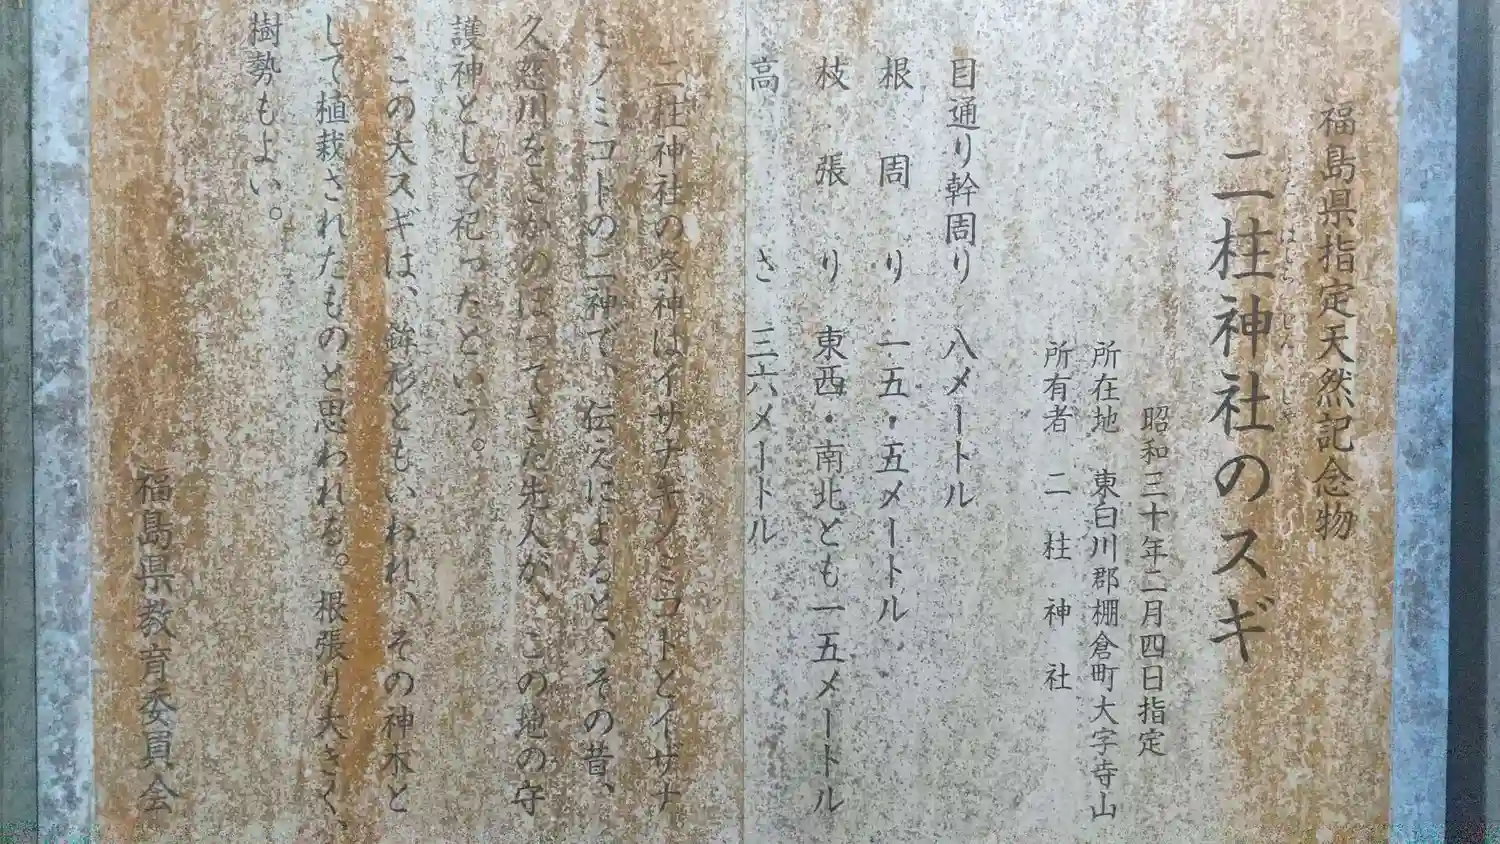 福島県指定天然記念物
二柱神社のスギ
ふた はしら じんじゃ
昭和三十年二月四日指定
所在地 東白川郡棚倉町大字寺山
所有者 二柱神社
目通り幹周り 八メートル
根周り 一五・五メートル
枝張り 東西・南北とも一五メートル
高さ 三六メートル
二柱神社の祭神はイサナギノミコトとイーザナ
ミノミコトの二神で、伝えによると、その昔、
久慈川をさかのぼってきた先人が、この地の守
護神として祀ったという。
このの大スギは、鉾杉ともいわれ、その神木と
して植栽されたものと思われる。根張り大きく、
樹勢もよい。
福島県教育委員会